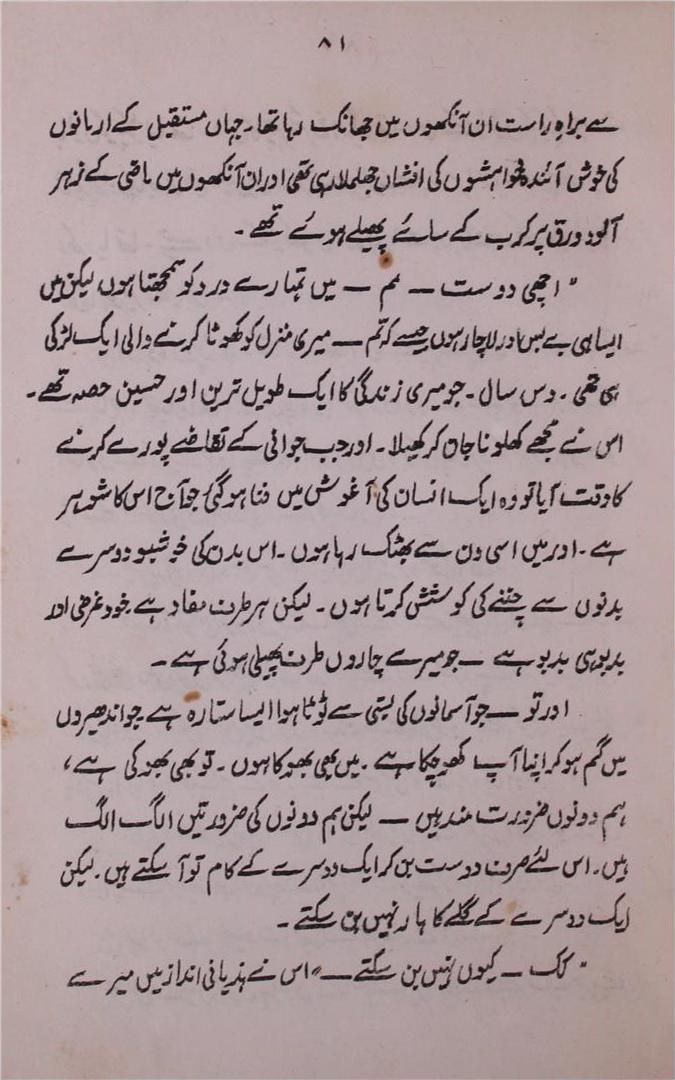 ۸۱
سے براہِ راست ان آنکھوں میں جھانک رہا تھا۔ جہاں مستقبل کے ارمانوں
کی خوش آئند خواہشوں کی افشاں جھلملا رہی تھی اور ان آنکھوں میں ماضی کے زہر
آلود ورق پر کرب کے سائے پھیلے ہوئے تھے۔
"اچھی دوست — تم — میں تمہارے درد کو سمجھتا ہوں لیکن میں
ایسا ہی بے بس اور لاچار ہوں جیسے کہ تم — میری منزل کو کھوٹا کرنے والی ایک لڑکی
ہی تھی۔ دس سال۔ جو میری زندگی کا ایک طویل ترین اور حسین حصہ تھے۔
اس نے مجھے کھلونا جان کر کھیلا۔ اور جب جوانی کے تقاضے پورے کرنے
کا وقت آیا تو وہ ایک انسان کی آغوش میں فنا ہو گئی جو آج اس کا شوہر
ہے۔ اور میں اسی دن سے بھٹک رہا ہوں۔ اس بدن کی خوشبو دوسرے
بدنوں سے چننے کی کوشش کرتا ہوں۔ لیکن ہر طرف مفاد ہے خود غرضی اور
بدبو ہی بدبو ہے — جو میرے چاروں طرف پھیلی ہوئی ہے۔
اور تو — جو آسمانوں کی پستی سے ٹوٹا ہوا ایسا ستارہ ہے جو اندھیروں
میں گم ہو کر اپنا آپ کھو چکا ہے۔ میں بھی بھوکا ہوں۔ تو بھی بھوکی ہے،
ہم دونوں ضرورت مند ہیں — لیکن ہم دونوں کی ضرورتیں الگ الگ
ہیں۔ اس لئے صرف دوست بن کر ایک دوسرے کے کام تو آ سکتے ہیں۔ لیکن
ایک دوسرے کے گلے کا ہار نہیں بن سکتے۔
"کک — کیوں نہیں بن سکتے —" اس نے ہذیانی انداز میں میرے